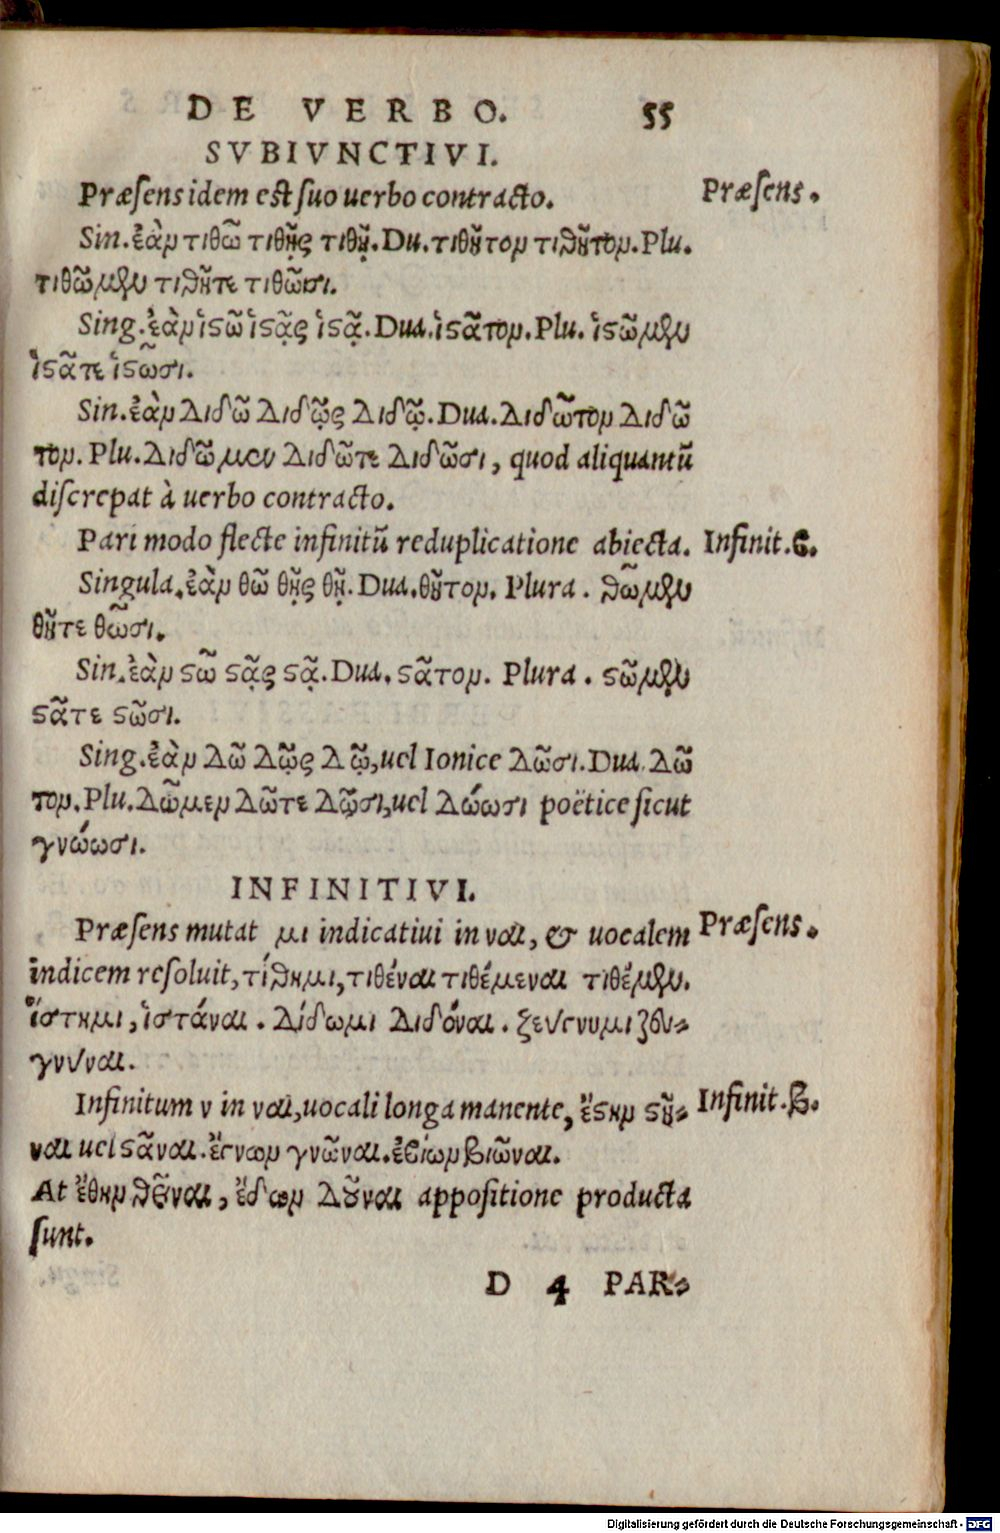 DE VERBO. 55
SVBIVNCTIVI.
Præsens idem est suo uerbo contracto. Præsens.
Sin. ἐὰν τιθῶ τιθῇς τιθῇ. Du. τιθῆτον τιθῆτον. Plu.
τιθῶμεν τιθῆτε τιθῶσι.
Sing. ἐὰν ἱστῶ ἱστᾷς ἱστᾷ. Dua. ἱστᾶτον. Plu. ἱστῶμεν
ἱστᾶτε ἱστῶσι.
Sin. ἐὰν διδῶ διδῷς διδῷ. Dua. διδῶτον διδῶ
τον. Plu. διδῶμεν διδῶτε διδῶσι, quod aliquantũ
discrepat à uerbo contracto.
Pari modo flecte infinitũ reduplicatione abiecta. Infinit. ϐ.
Singula. ἐὰν θῶ θῇς θῇ. Dua. θῆτον. Plura. θῶμεν
θῆτε θῶσι.
Sin. ἐὰν στῶ στᾷς στᾷ. Dua. στᾶτον. Plura. στῶμεν
στᾶτε στῶσι.
Sing. ἐὰν δῶ δῷς δῷ, uel Ionice δῶσι. Dua. δῶ
τον. Plu. δῶμεν δῶτε δῶσι, uel δώωσι poëtice sicut
γνώωσι.
INFINITIVI.
Præsens mutat μι indicatiui in ναι, & uocalem Præsens.
indicem resoluit, τίθημι, τιθέναι τιθέμεναι τιθέμεν.
ἵστημι, ἱστάναι. δίδωμι διδόναι. ζεύγνυμι ζευ-
γνύναι.
Infinitum ν in ναι, uocali longa manente, ἔστην στῆ- Infinit. β.
ναι uel στᾶναι. ἔγνων γνῶναι. ἐϐίων βιῶναι.
At ἔθην θεῖναι, ἔδων δοῦναι appositione producta
sunt.
D 4 PAR-
Digitalisierung gefördert durch die Deutsche Forschungsgemeinschaft - DFG